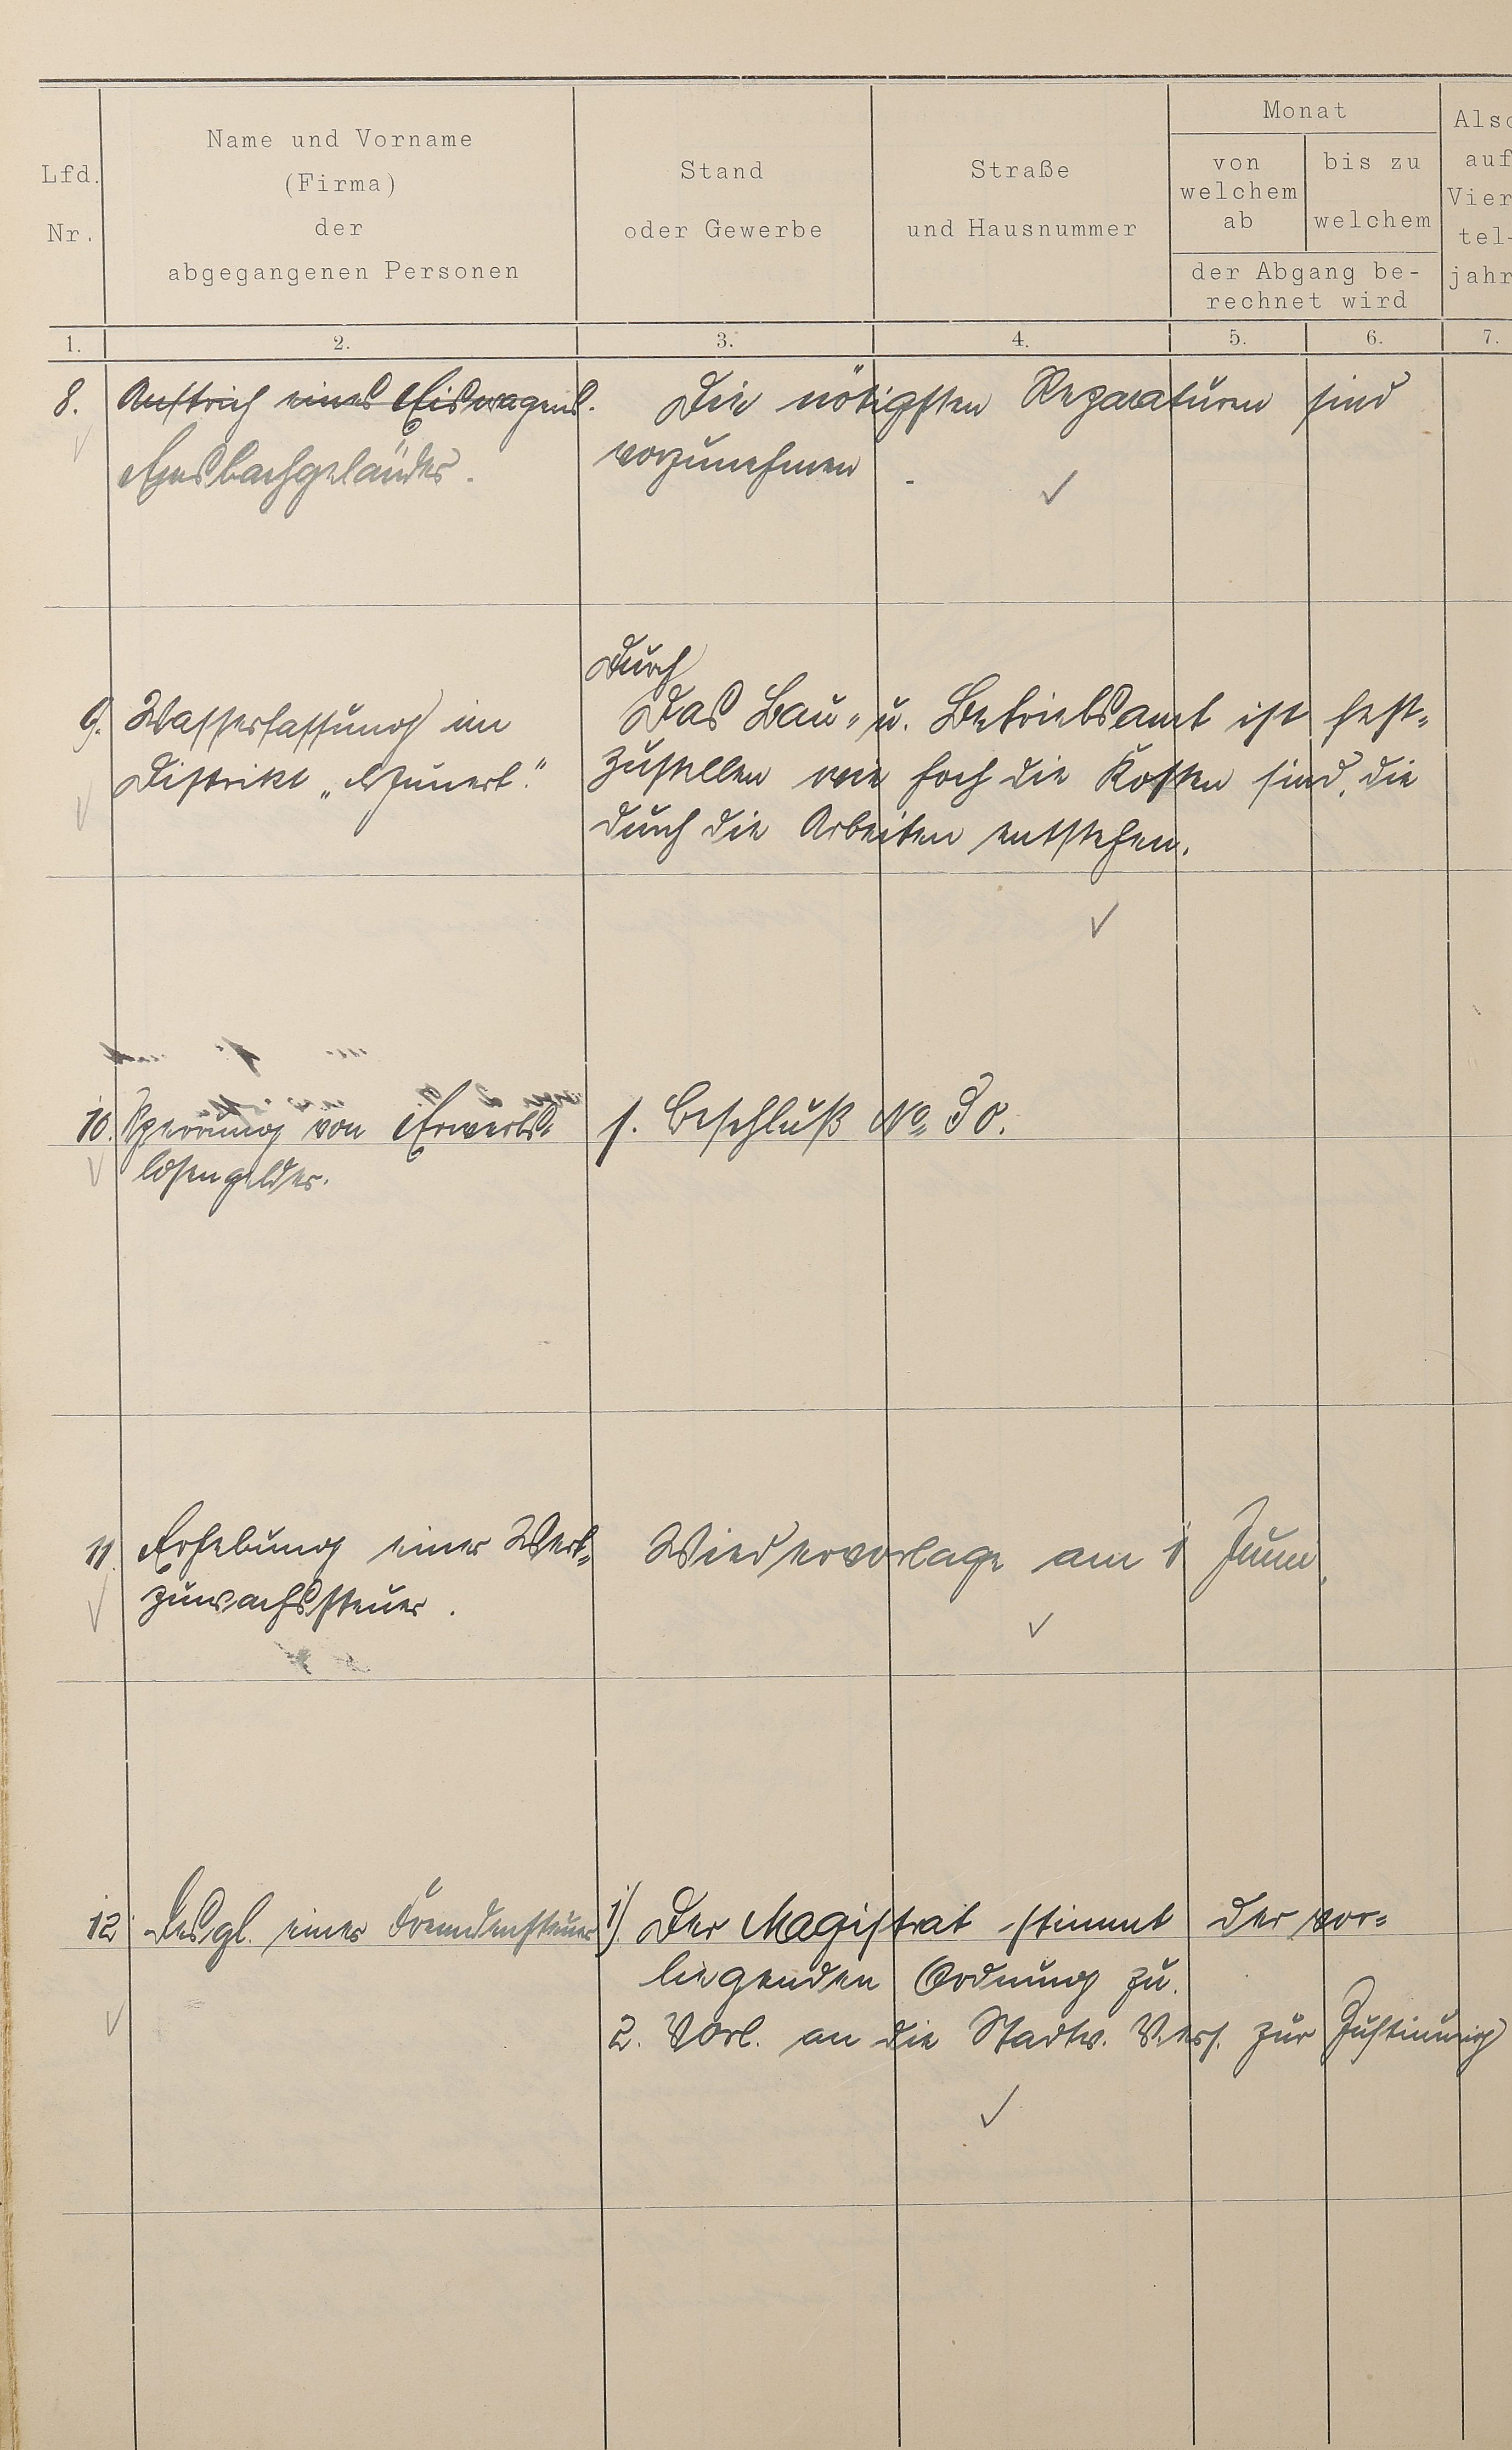 Lfd.
Nr.
Name und Vorname
(Firma)
der
abgegangenen Personen
Stand
oder Gewerbe
Straße
und Hausnummer
Monat
von
welchem
ab
bis zu
welchem
der Abgang be-
rechnet wird
Also
auf
Vier
tel-
jahr
1. 2. 3. 4. 5. 6. 7.
8. Anstrich eines Eiswagens. Die nötigsten Reparaturen sind
Emsbachgeländer. vorzunehmen.
Durch
9. Wasserfassung im Das Bau- u. Betriebsamt ist fest-
Distrikt zustellen wie hoch die Kosten sind, die
durch die Arbeiten entstehen.
10. Sperrung von Erwerbs- s. Beschluß No. 30.
losengelder.
11. Erhebung einer Wert- Wiedervorlage am 1 Juni.
zuwachssteuer.
12 Desgl. einer Fremdensteuer 1). Der Magistrat stimmt der vor-
liegenden Ordnung zu.
2. Vorl. an die Stadtv. Vers. zur Zustimmg